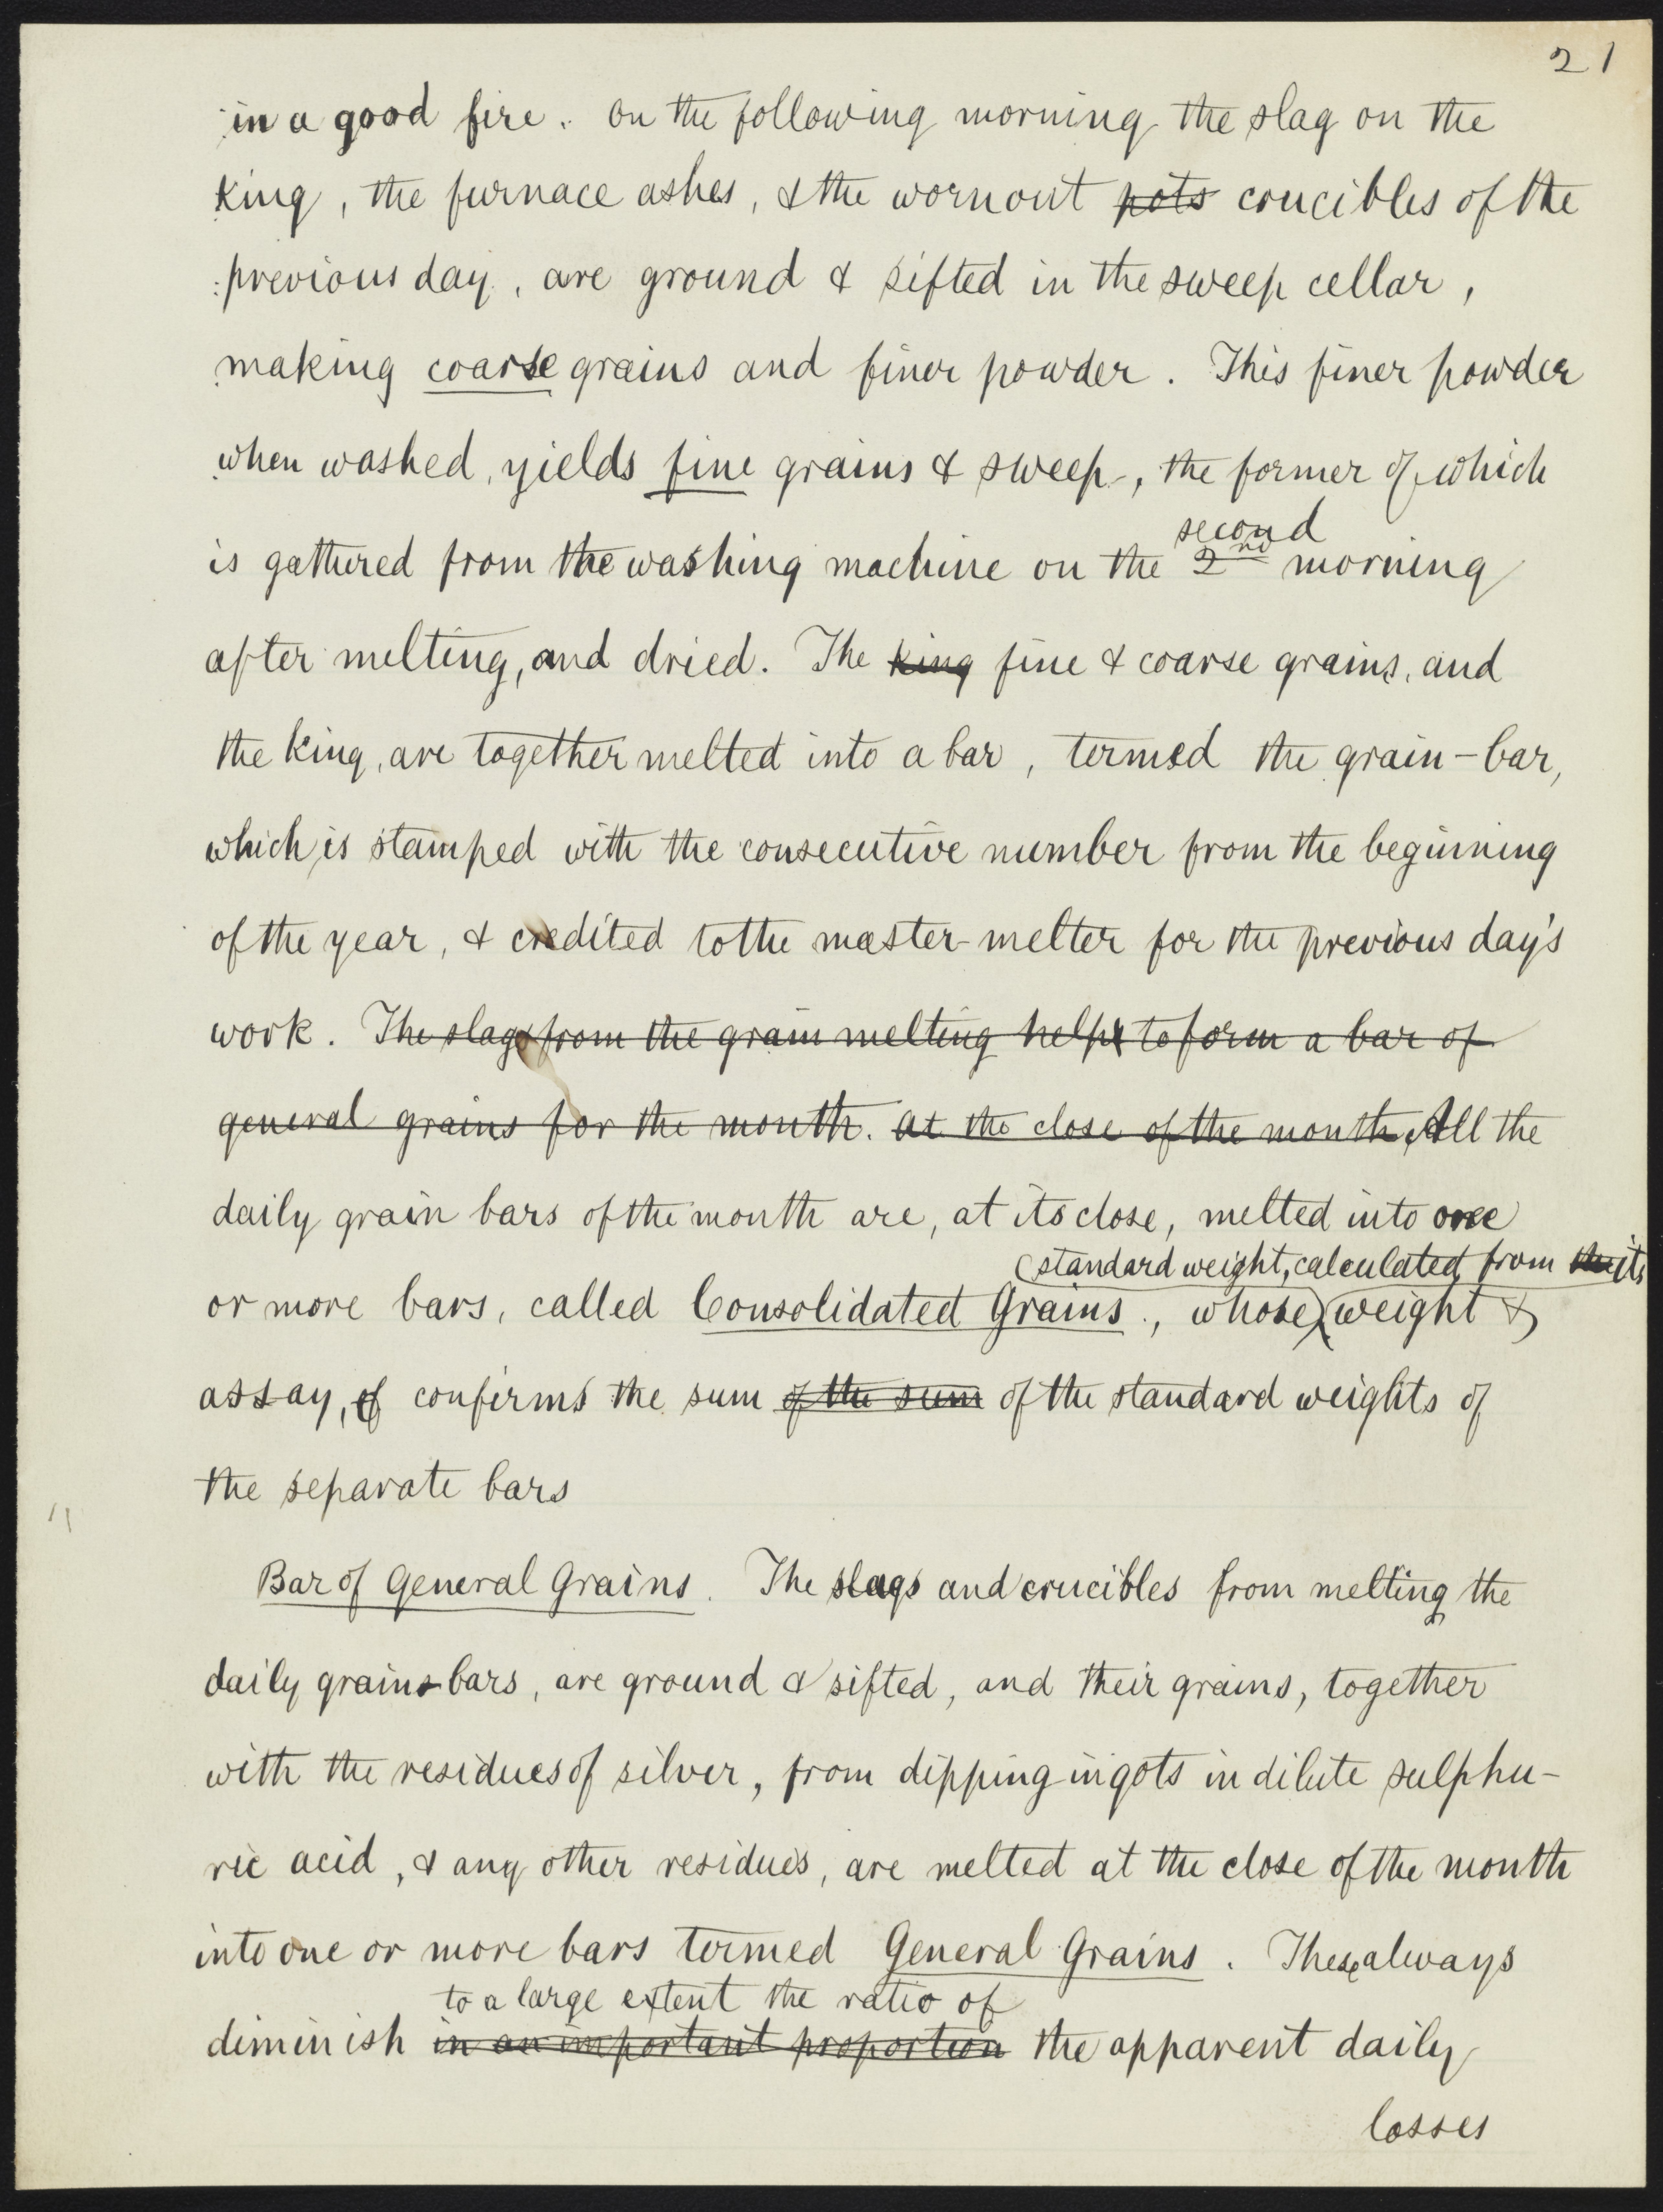 21
in a good fire. On the following morning the slag on the
king, the furnace ashes, & the wornout pots crucibles of the
previous day, are ground & sifted in the sweep cellar,
making coarse grains and finer powder. This finer powder
when washed, yields fine grains & sweep, the former of which
second
is gathered from the washing machine on the 2nd morning
after melting, and dried. The king fine & coarse grains, and
the king, are together melted into a bar, termed the grain-bar,
which is stamped with the consecutive number from the beginning
of the year, & credited to the master-melter for the previous day's
work. The slags from the grain melting helps to form a bar of
general grains for the month. At the close of the month, All the
daily grain bars of the month are, at its close, melted into one
standard weight, calculated from the its
or more bars, called Consolidated Grains., whose weight &
assay, of confirms the sum of the sum of the standard weights of
the separate bars
Bar of General Grains. The slags and crucibles from melting the
daily grains bars, are ground & sifted, and their grains, together
with the residues of silver, from dipping ingots in dilute sulphu-
ric acid, & any other residues, are melted at the close of the month
into one or more bars termed General Grains. These always
to a large extent the ratio of
diminish in an important proportion the apparent daily
losses